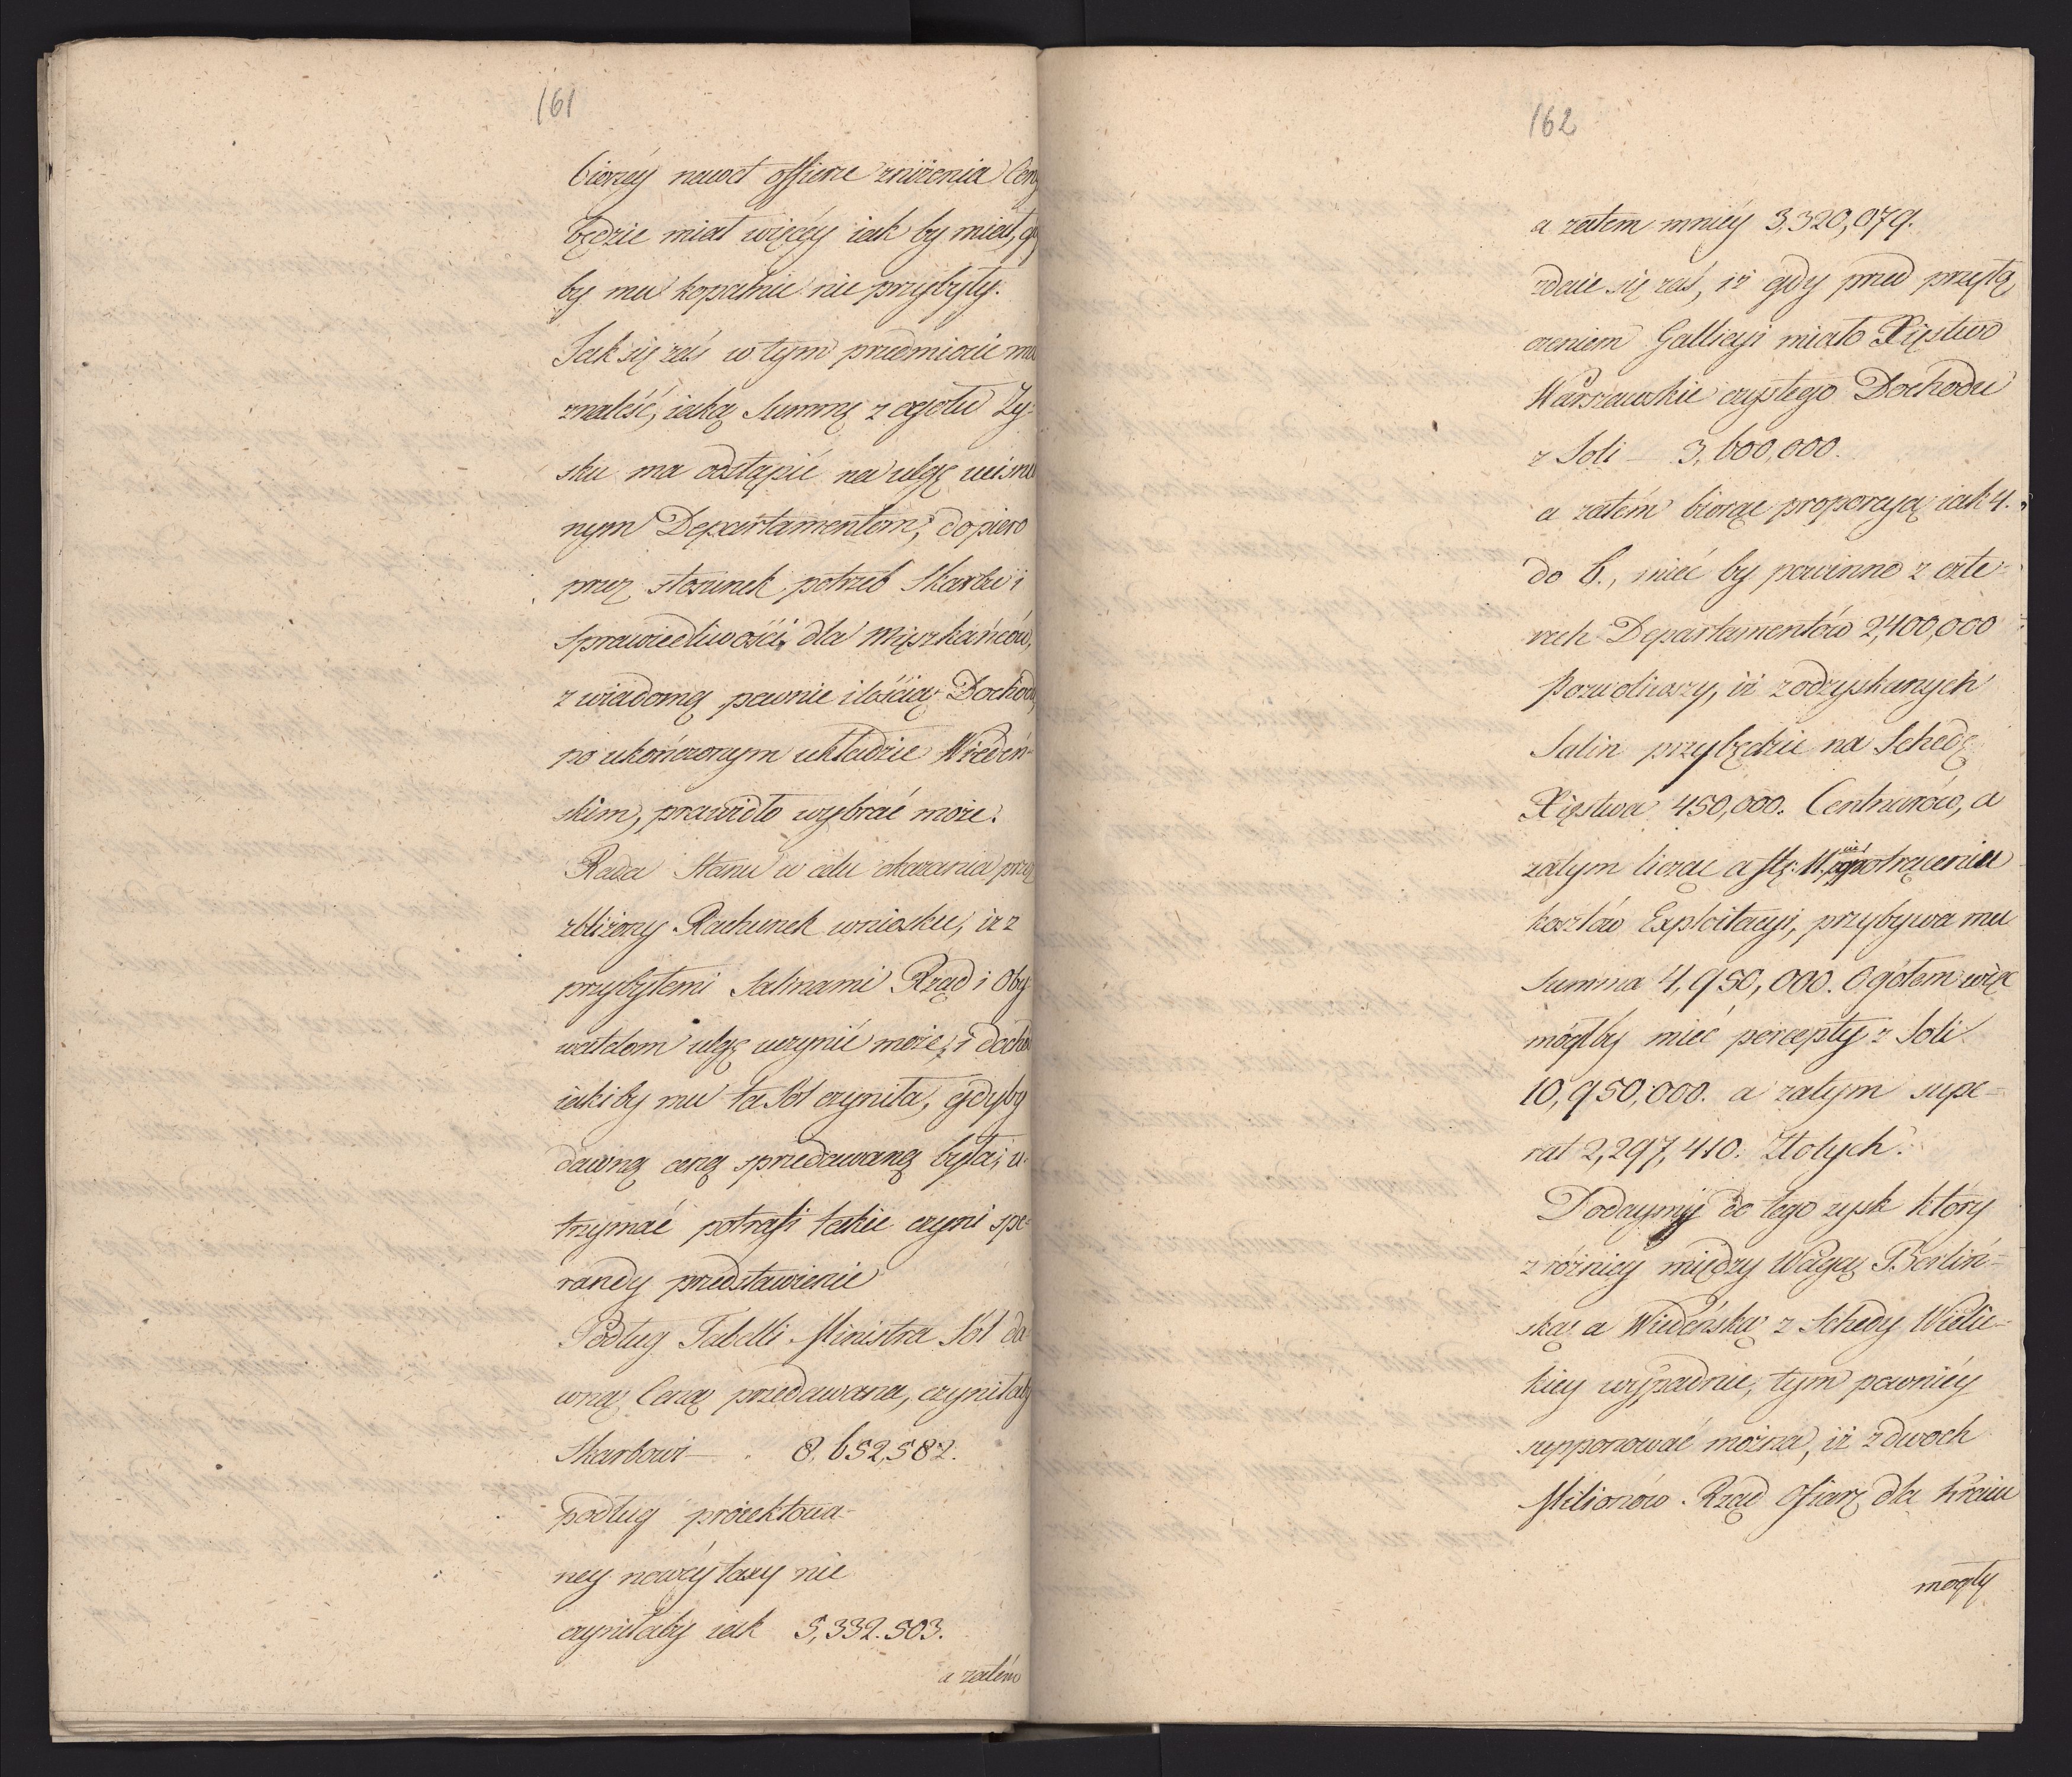 161
bierzéy nawet offierze zniżenia Ceny
będzie miał więcéy iak by miał, gdy
by mu kopalnie nie przybyły.
Jak się zaś w tym przedmiocie ma
znaleść, iaką Summę z ogołu Zy-
sku ma odstąpić na ulgę uciśnio
nym Departamentom, dopiero
przez stosunek potrzeb Skarbu i
sprawiedliwości dla Mięszkańców,
z wiadomą pewnie ilością Dochodu,
po ukończonym układzie Wiedeń-
skim, prawidło wybrać może.
Rada Stanu w celu okazania przez
zbliżony Rachunek wniosku, iż z
przybyłemi Salinami Rząd i Oby
watelom ulgę uczynić może, i docho
iakiby mu ta Sól czyniła, gdyby
dawną ceną sprzedawaną była, u-
trzymać potrafi takie czyni spe-
randy przedstawienie
Podług Tabelli Ministra Sól da
wną Ceną przedawana, czyniłaby
Skarbowi — 8,652,582.
podług proiektowa-
ney nowéy taxy nie
czyniłaby iak 5,332.503.
a zatém
162
a zatem mniéy 3,320,079.
zdaie się zaś, iż gdy przed przyłą
czeniem Gallicyi miało Xięstwo
Warszawskie czystego Dochodu
z Soli — 3,600,000.
a zatém biorąc proporcyą iak 4.
do 6., mieć by powinno z czte-
rech Departamentów 2,400,000
Pozwoliwszy, iż z odzyskanych
Salin przybędzie na Schedę
Xięstwa 450,000. Centnarów, a
zatym licząc a fl: 11. potrąceniu
kosztów Exploitacyi, przybywa mu
Summa 4,950,000. Ogółem więc
mógłby mieć percepty z Soli
10,950,000. a zatym supe-
rat 2,297,410. Złotych.
Dodaymy do tego zysk który
z różnicy między Wagą Berliń-
ską a Wiedeńską z Schedy Wielic-
kiey wypadnie, tym pewniéy
supponować można, iż z dwoch
Milionów Rząd Ofiarę dla Kraiu
mógłby